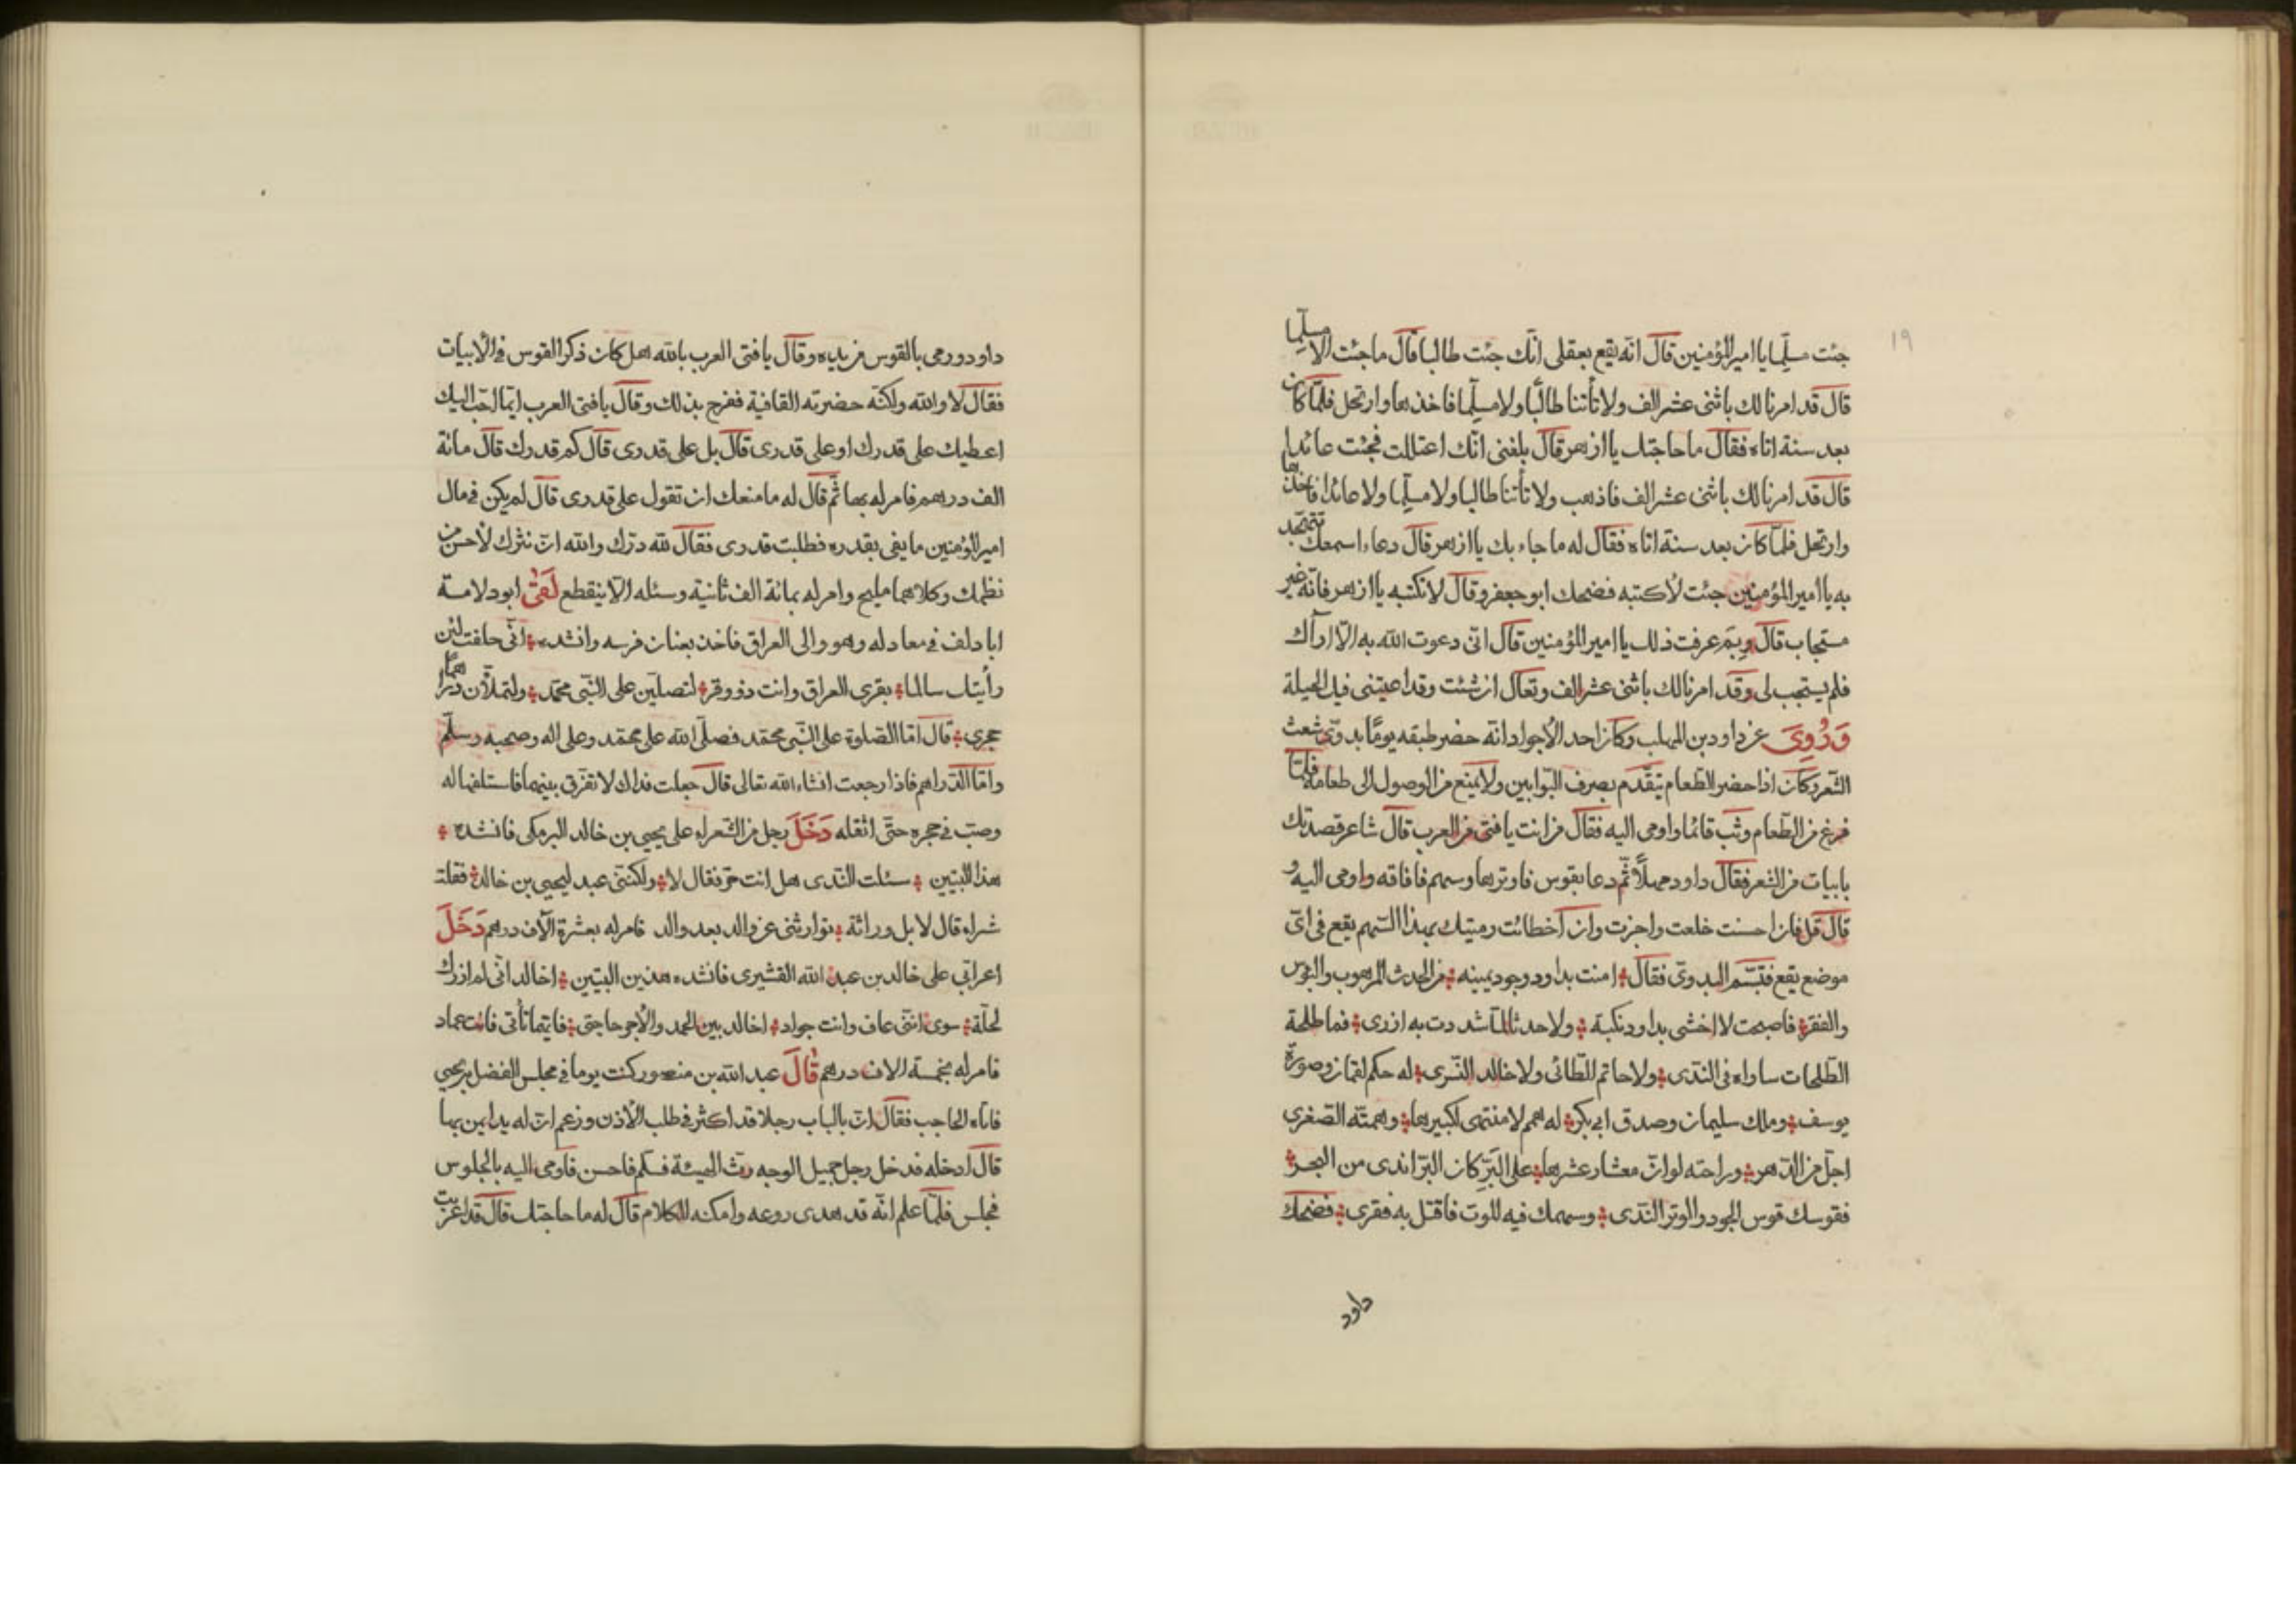 ١٩
جئت مسلّما يا امير المؤمنين قال انّه يقع بعقلى انّك جئت طالبا قال ما جئت الّا مسلّما
قال قد امرنا لك باثنى عشر الف ولا تأتنا طالبًا ولا مسلّما فاخذها وارتحل فلمّا كان
بعد سنة اتاه فقال ما حاجتك يا ازهر قال بلغنى انّك اعتللت فجئت عائدا
قال قد امرنا لك باثنى عشر الف فاذهب ولا تأتنا طالبا ولا مسلّما ولا عائدا فاخذها
وارتحل فلمّا كان بعد سنة اتاه فقال له ما جاء بك يا ازهر قال دعاء اسمعك تتهجّد
به يا امير المؤمنين جئت لأكتبه فضحك ابو جعفر وقال لا تكتبه يا ازهر فانّه غير
مستجاب قال وبِمَ عرفت ذلك يا امير المؤمنين قال انّى دعوت الله به الّا اراك
فلم يستجب لى وقد امرنا لك باثنى عشر الف وتعال ان شئت وقد اعيتنى فيك الحيلة
وَرُوِىَ عن داود بن المهلب وكان احد الأجواد انّه حضر طبقه يومًا بدوىّ شعث
الشّعر وكان اذا حضر الطّعام يتقّدم بصرف البّوابين ولا يمنع من الوصول الى طعامه فلمّا
فرغ من الطّعام وثب قائما واومى اليه فقال من انت يا فتى من العرب قال شاعر قصدتك
بابيات من الشعر فقال داود مهلًا ثمّ دعا بقوس فاوترها وسهم فافاقه واومى اليه و
قال قل فان احسنت خلعت واجزت وان أخطائت رميتك بهذا السّهم يقع فى اىّ
موضع يقع فتبسّم البدوىّ فقال امنت بداود وجود يمينه من الحدث المرهوب والبؤس
والفقر فاصبحت لا اخشى بداود نكبة ولا حدثا لمّا شددت به ازرى فما طلحة
الطّلحات ساواه فى النّدى ولا حاتم الطّائى ولا خالد النّسرى له حكم لقمان وصورة
يوسف وملك سليمان وصدق ابى بكر له همم لا منتهى لكبيرها وهمّته الصّغرى
اجلّ من الدّهر وراحته لو انّ معشار عشرها على البَرِّ كان البرّ اندى من البحر
فقوسك قوس الجود والوتر النّدى وسهمك فيه الموت فاقتل به فقرى فضحك
داود
داود ورمى بالقوس من يديه وقال يا فتى العرب بالله هل كان ذكر القوس فى الأبيات
فقال لا والله ولكنّه حضرته القافية ففرح بذلك وقال يا فتى العرب ايّما احّب اليك
اعطيك على قدرك او على قدرى قال بل على قدرى قال كم قدرك قال مائة
الف درهم فامر له بها ثّم قال له ما منعك ان تقول على قدرى قال لم يكن فى مال
امير المؤمنين ما يفى بقدره فطلبت قدرى فقال لله درّك والله انّ نثرك لأحسن من
نظمك وكلاهما مليح وامر له بمائة الف ثانية وسئله الّا ينقطع لَقَىَ ابو دلامة
ابا دلف فى معاد له وهو والى العراق فاخذ بعنان فرسه وانشده انّى حلفت لئن
رأيتك سالما بقرى العراق وانت ذو وقر لتصلّين على النّبى محمّد ولتملأنّ دراهما
حجرى قال امّا الصّلوة على النّبى محمّد فصلّى الله على محمّد وعلى اله وصحبه وسلّم
وامّا الدّراهم فاذا رجعت انشاء الله تعالى قال جعلت فداك لا تفرّق بينهما فاستلفها له
وصبّ فى حجره حتّى اثقله دَخَلَ رجل من الشّعراء على يحيى بن خالد البرمكى فانشده
هذا البيتين سئلت النّدى هل انت حرّ فقال لا ولكنّنى عبد ليحيى بن خالد فقلت
شراء قال لا بل وراثة توارثنى عن والد بعد والد فامر له بعشرة آلاف درهم دَخَلَ
اعرابّي على خالد بن عبد الله القشيرى فانشده هذين البيتين اخالد انّى لم ازرك
لحلّة سوى انّنى عاف وانت جواد اخالد بين الحمد والأجر حاجتى فايّهما تأتى فانت عماد
فامر له بخمسة الاف درهم قَالَ عبد الله بن منصور كنت يوما فى مجلس الفضل بن يحيى
فاتاه الحاجب فقال انّ بالباب رجلا قد اكثر فى طلب الأذن وزعم انّ له يدا يمن بها
قال ادخله فدخل رجل جميل الوجه رثّ الهيئة فسلم فاحسن فاومى اليه بالجلوس
فجلس فلمّا علم انّه قد هدى روعه وامكنه الكلام قال له ما حاجتك قال قد اعربت